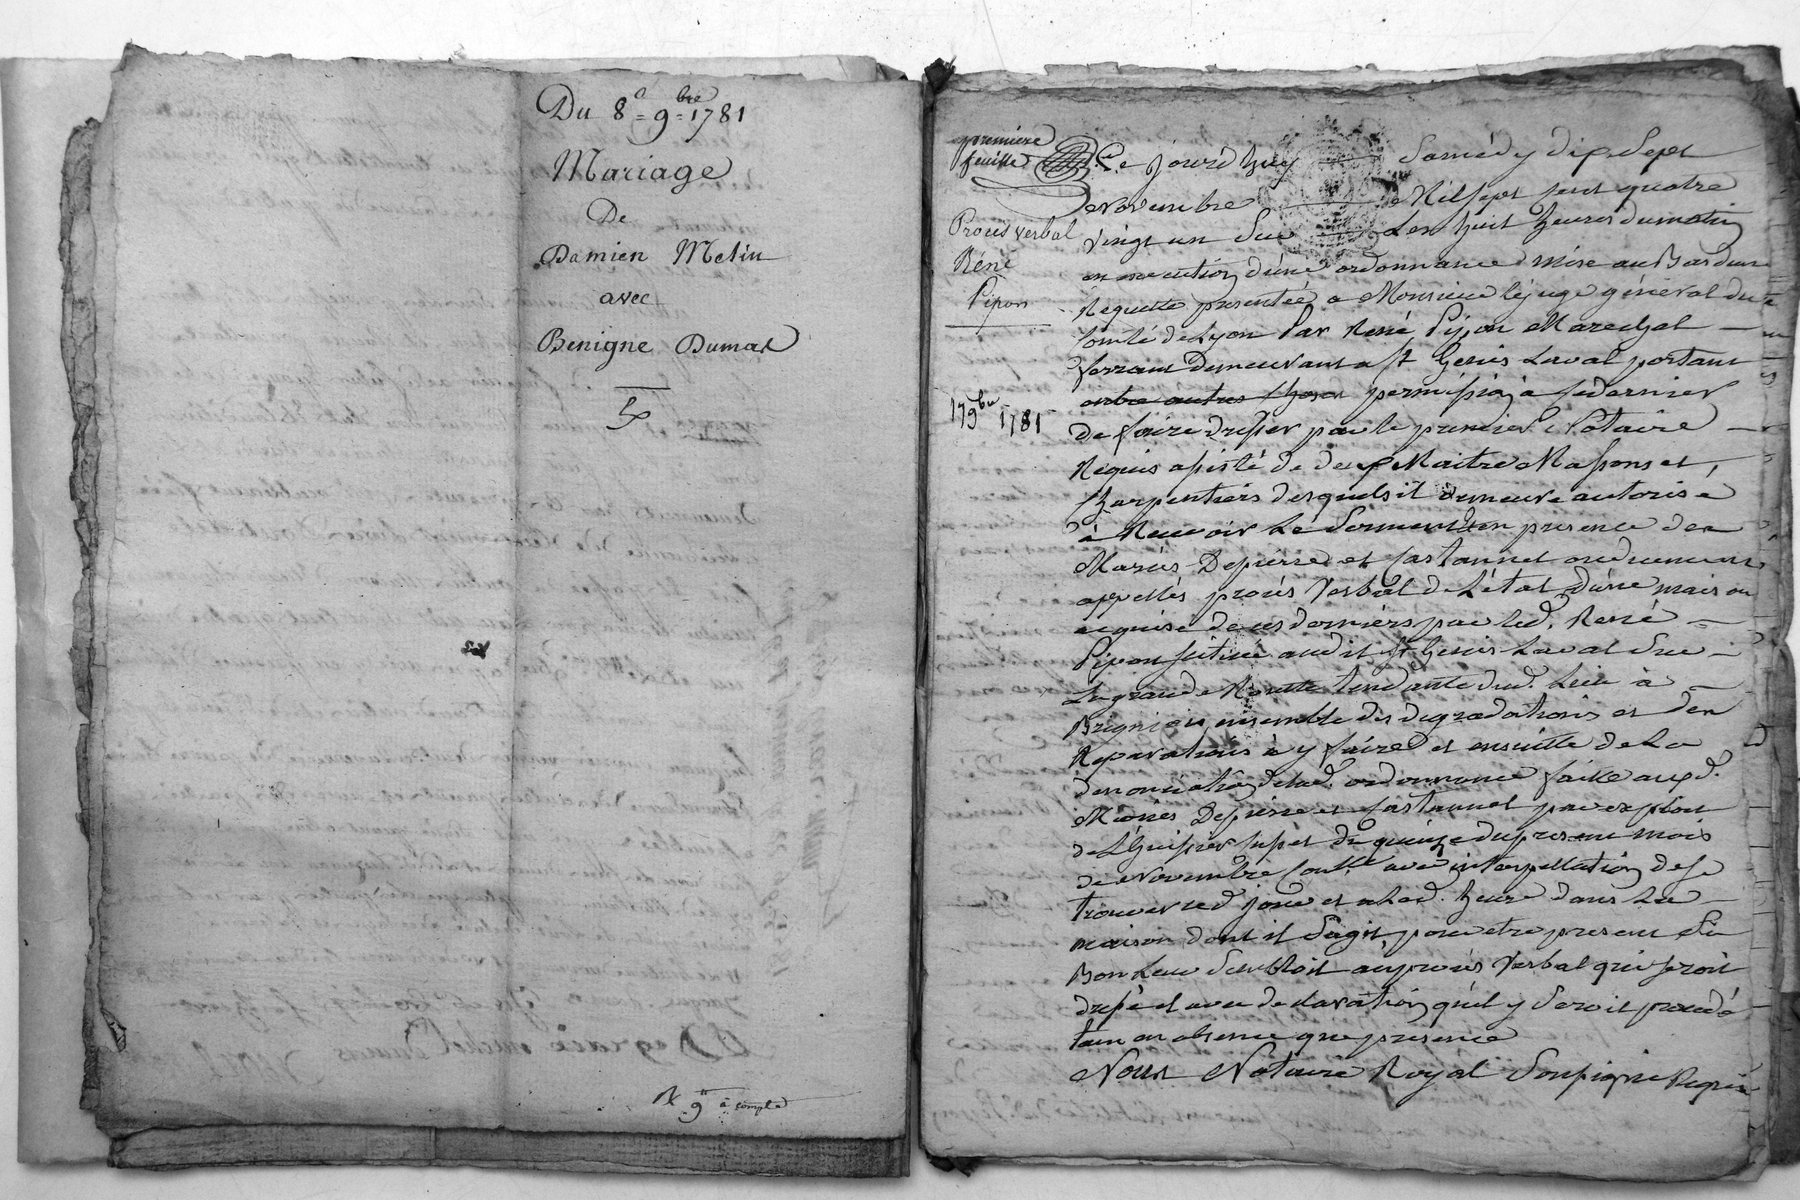 Du 8e 9bre 1781
Mariage
De
Damien Metin
avec
Benigne Dumas
R 9# à compte
première
feuille
Procès verbal
Réné
Pipon
17 9bre 1781
Ce jourd'huy Samédy dix Sept
Novembre Mil sept cent quatre
vingt un Sur Les huit heures du matin
en execution d'une ordonnance mise au Bas d'une
Requette presentée a Monsieur le juge géneral du
Comté de Lyon Par René Pipon Marechal
ferrant Demeurant a St Genis Laval portant
entre autres choses permission a ce dernier
de faire dresser par le premier Notaire
Requis assisté de deux Maitre Massons et
Charpentiers desquels il demeure autorisé
à Recevoir Le Serment en presence des
Mariés Depierre et Castannet ou duement
appellés procès Verbal de L'état d'une maison
acquise de ces derniers par led. René
Pipon scituée audit St Genis Laval Sur
La grande Routte tendante dud. Lieu à
Brignais ensemble des degradations et des
Reparations à y faire et ensuitte de La
denonciation delad. ordonnance faitte auxd.
Mariés Depierre et Castannet par exploit
de L'huissier du quinze du present mois
de Novembre Conlle avec interpellation de se
trouver ced. jour et alad. heure dans La
maison dont il S'agit, pour etre present Si
Bon Leur Sembloit au procès Verbal qui seroit
dressé et avec declaration qu'il y Seroit procedé
tant en absence que presence
Nous Notaire Royal Soussigné